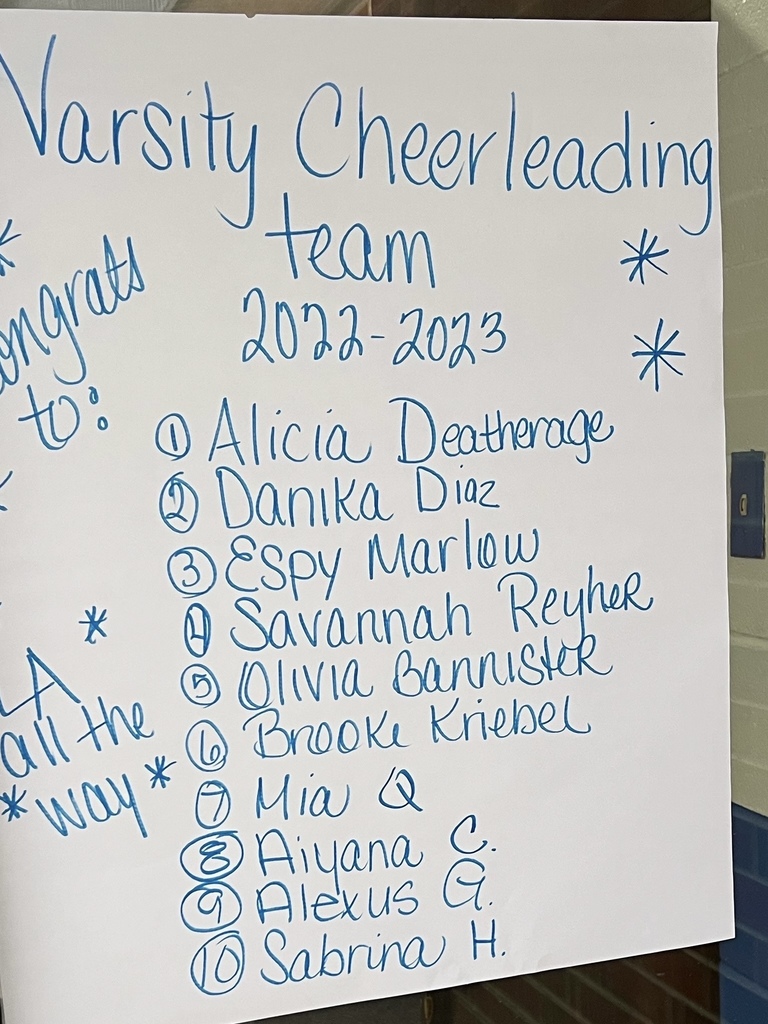 Varsity Cheerleading
team
2022-2023
ongrats
to:
① Alicia Deatherage
② Danika Diaz
③ Espy Marlow
④ Savannah Reyher
⑤ Olivia Bannister
⑥ Brooke Kriebel
⑦ Mia Q
⑧ Aiyana C.
⑨ Alexus G.
⑩ Sabrina H.
LA
all the
*way*